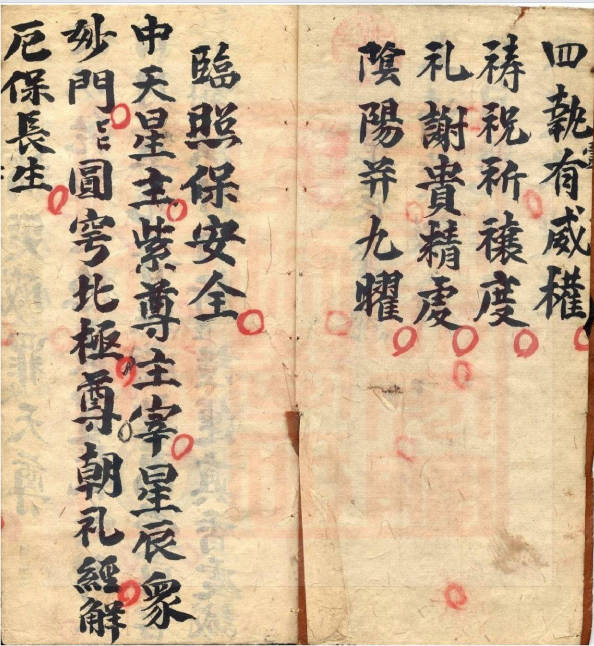 四執有威權
祷祝祈禳度
礼謝貴精虔
陰陽并九曜
臨照保安全
中天星主紫尊主宰星辰衆
妙門巳圓穹北極尊朝礼經解
厄保長生